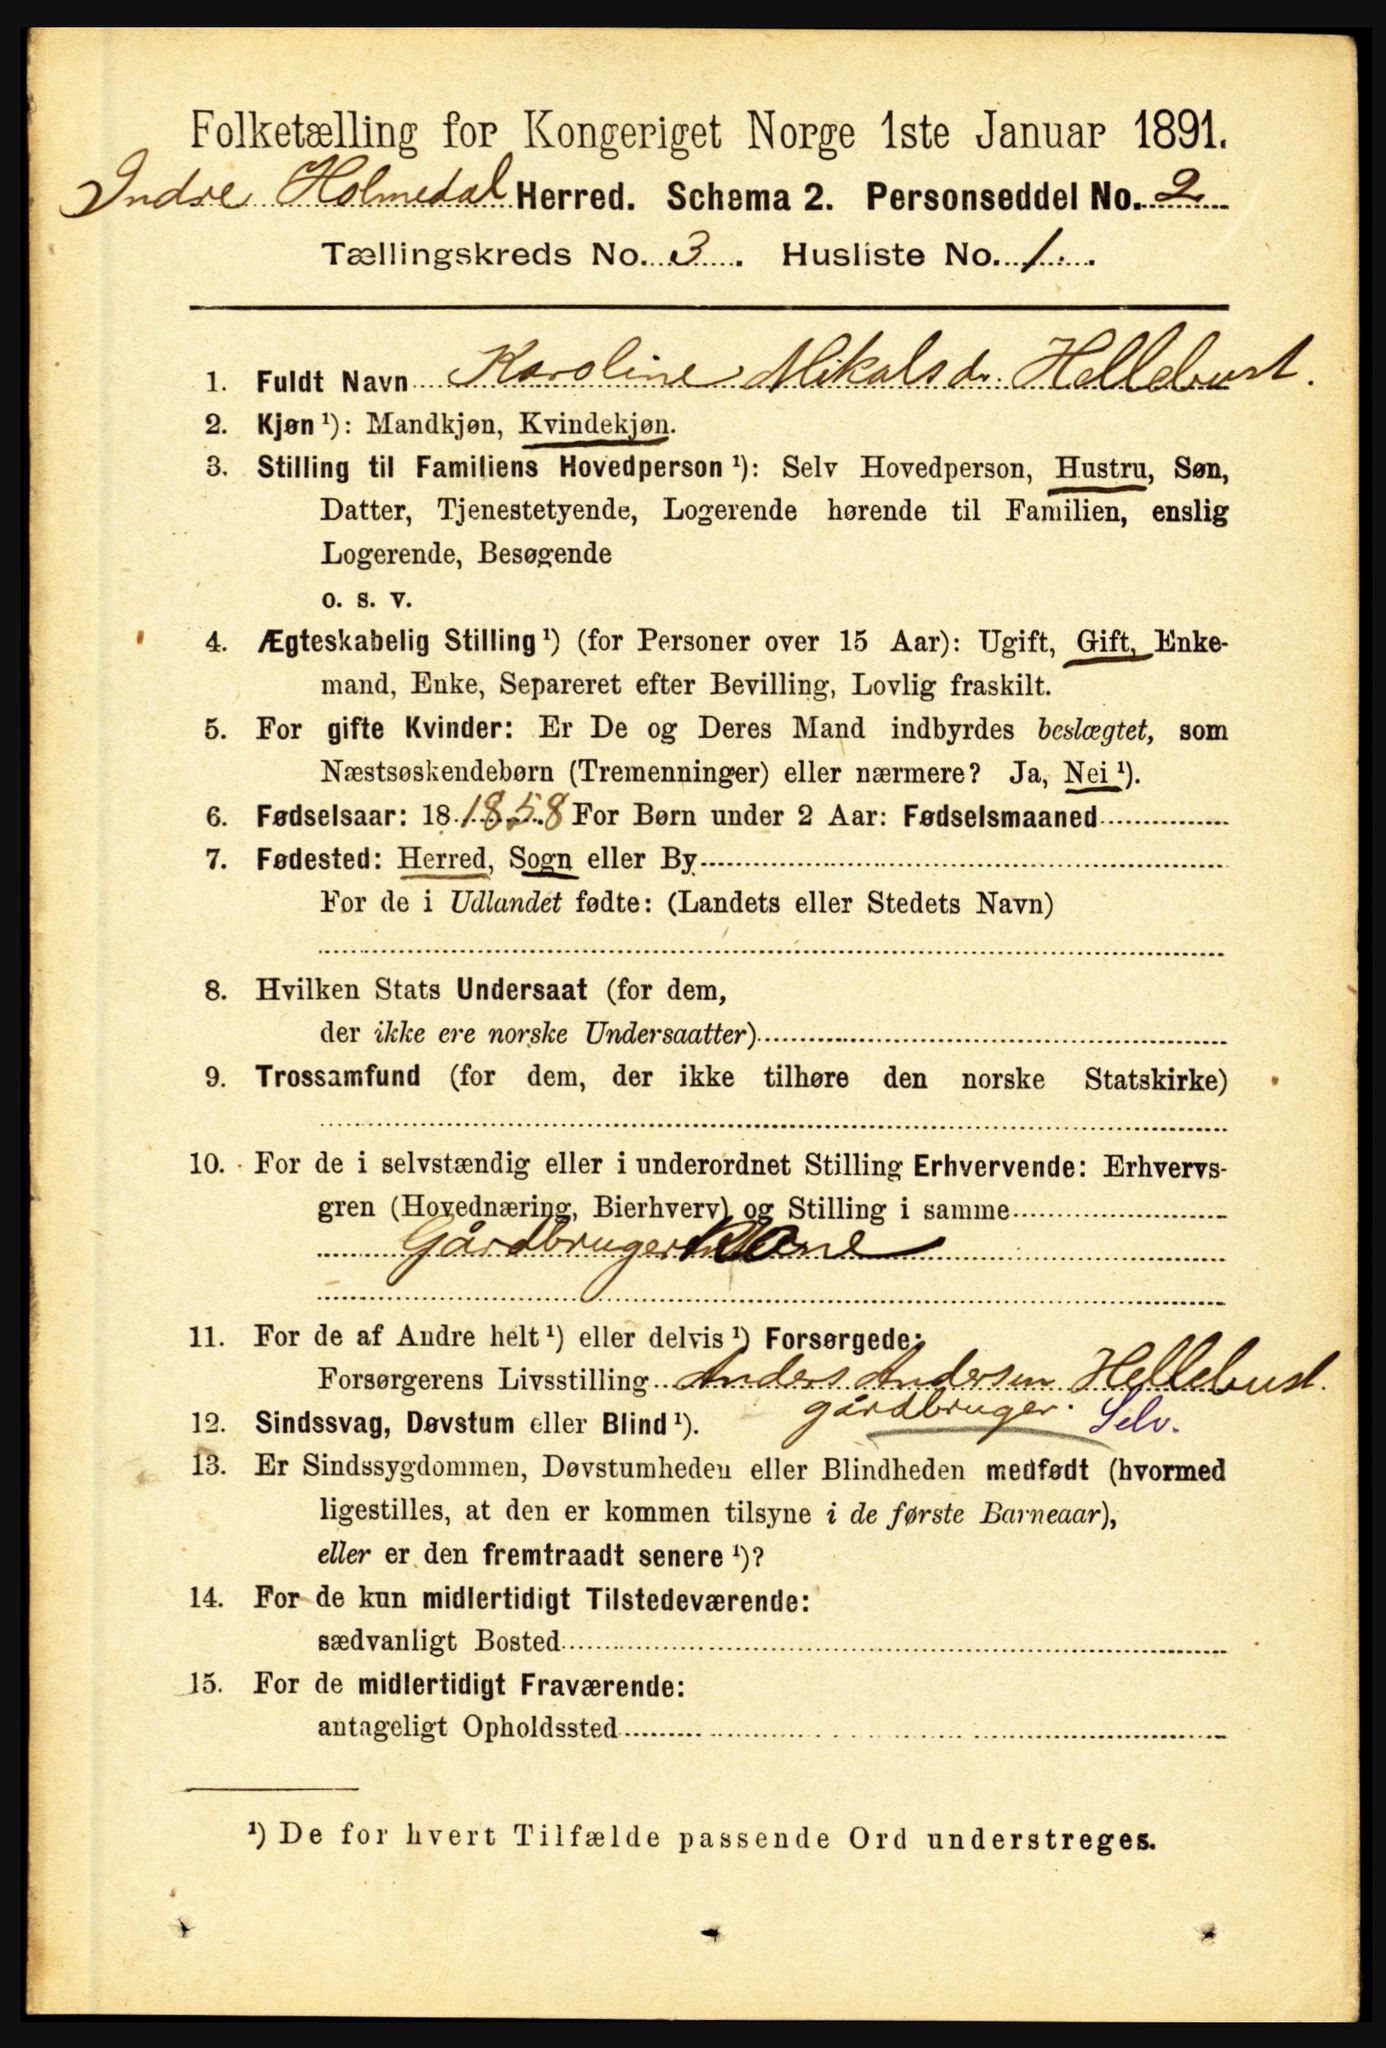 Folketælling for Kongeriget Norge 1ste Januar 1891.
Indre Holmedal Herred. Schema 2. Personseddel No. 2
Tællingskreds No. 3. Husliste No. 1.
1. Fuldt Navn Karoline Mikalsdr. Hellebust.
2. Kjøn ¹): Mandkjøn, Kvindekjøn.
3. Stilling til Familiens Hovedperson ¹): Selv Hovedperson, Hustru, Søn,
Datter, Tjenestetyende, Logerende hørende til Familien, enslig
Logerende, Besøgende
o. s. v.
4. Ægteskabelig Stilling ¹) (for Personer over 15 Aar): Ugift, Gift, Enke-
mand, Enke, Separeret efter Bevilling, Lovlig fraskilt.
5. For gifte Kvinder: Er De og Deres Mand indbyrdes beslægtet, som
Næstsøskendebørn (Tremenninger) eller nærmere? Ja, Nei ¹).
6. Fødselsaar: 18 1858 For Børn under 2 Aar: Fødselsmaaned
7. Fødested: Herred, Sogn eller By
For de i Udlandet fødte: (Landets eller Stedets Navn)
8. Hvilken Stats Undersaat (for dem,
der ikke ere norske Undersaatter)
9. Trossamfund (for dem, der ikke tilhøre den norske Statskirke)
10. For de i selvstændig eller i underordnet Stilling Erhvervende: Erhvervs-
gren (Hovednæring, Bierhverv) og Stilling i samme
Gårdbruger Kone
11. For de af Andre helt ¹) eller delvis ¹) Forsørgede:
Forsørgerens Livsstilling Anders Andersen Hellebust.
gårdbruger. Selv.
12. Sindssvag, Døvstum eller Blind ¹).
13. Er Sindssygdommen, Døvstumheden eller Blindheden medfødt (hvormed
ligestilles, at den er kommen tilsyne i de første Barneaar),
eller er den fremtraadt senere ¹)?
14. For de kun midlertidigt Tilstedeværende:
sædvanligt Bosted
15. For de midlertidigt Fraværende:
antageligt Opholdssted
¹) De for hvert Tilfælde passende Ord understreges.